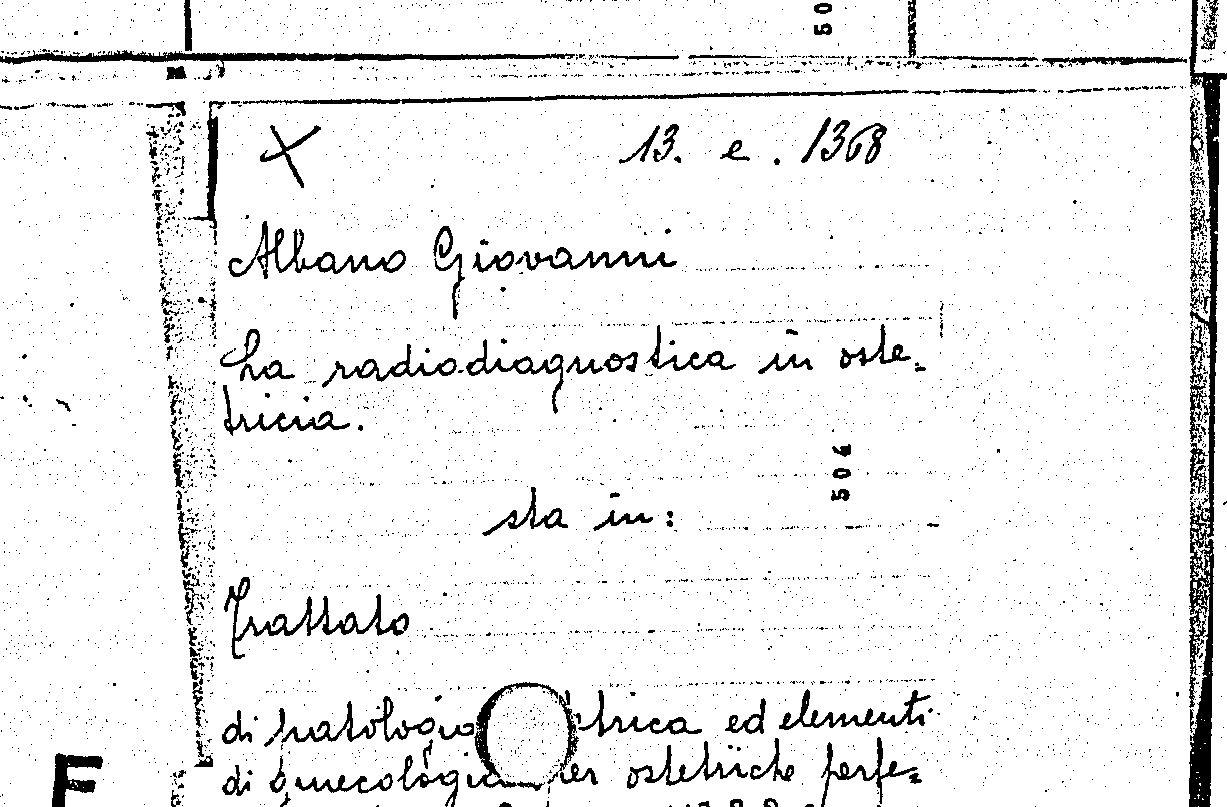 50
13. e. 1368
Albano Giovanni
La radiodiagnostica in oste=
tricia.
506
sta in:
Trattato
di patologia trica ed elementi
di ginecologia per ostetriche perfe=
F